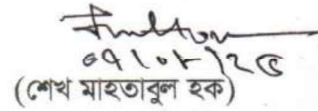 ০৭/০৮/২৫
(শেখ মাহতাবুল হক)